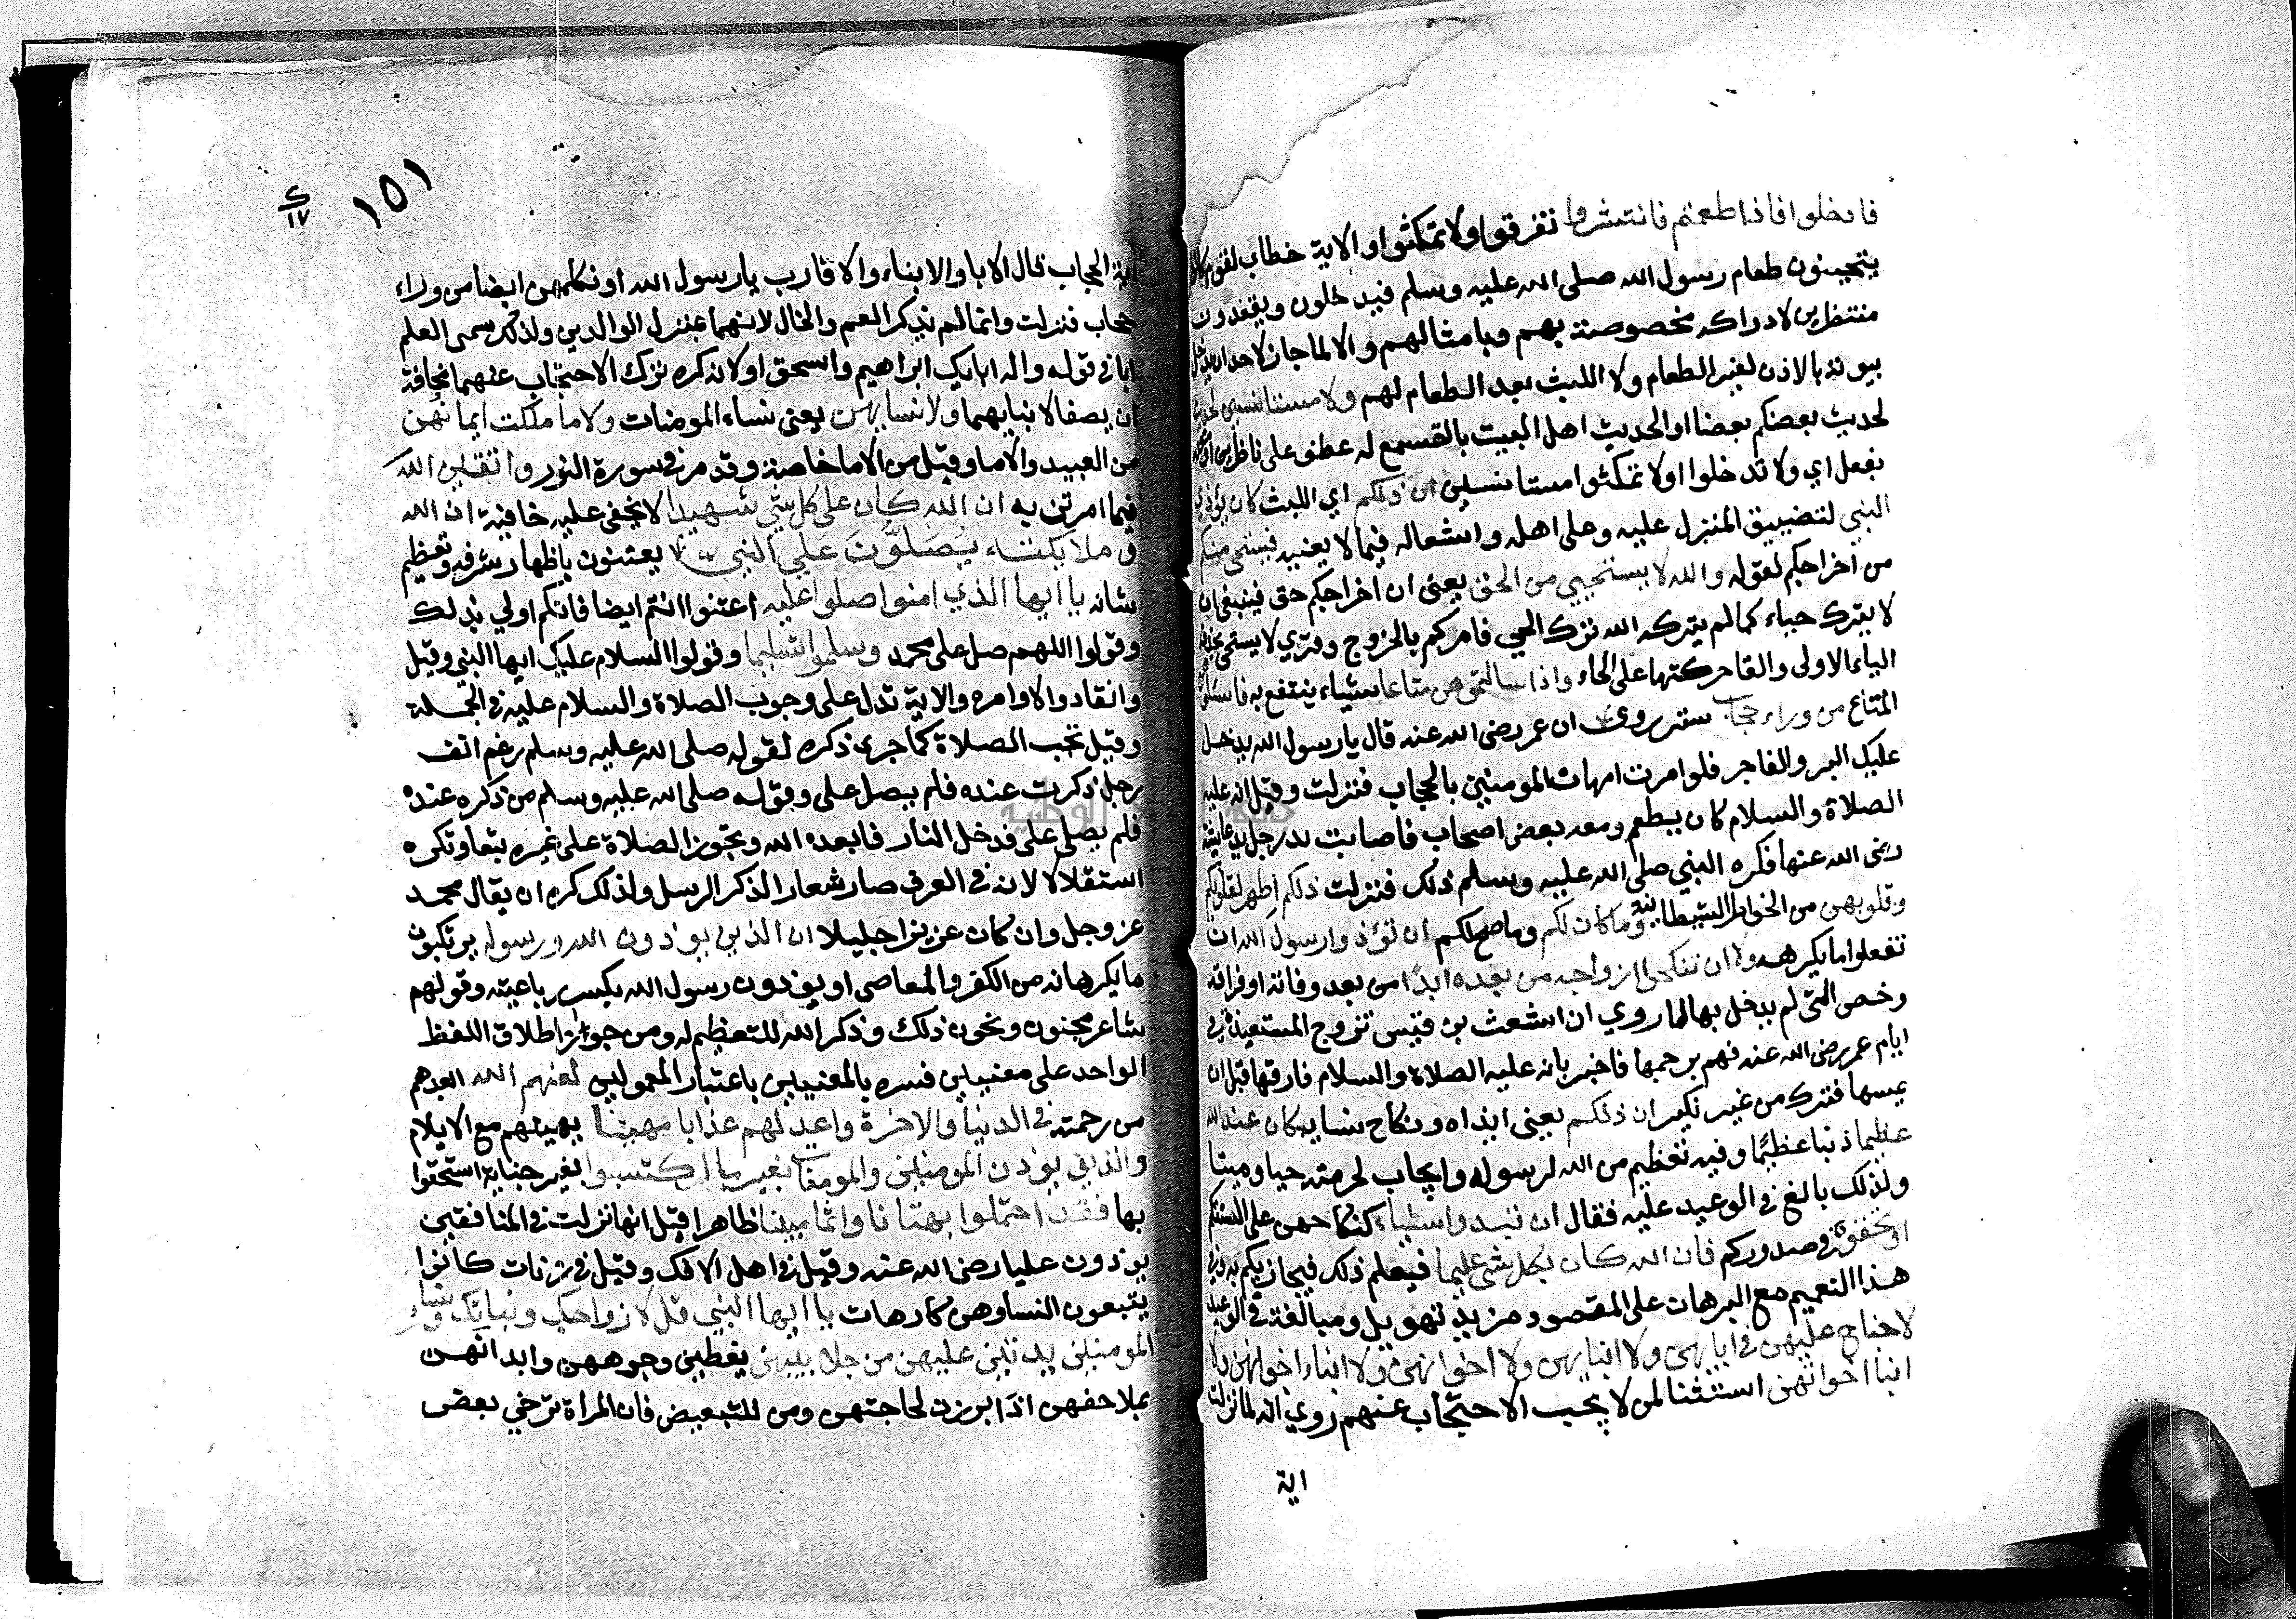 فادخلوا فاذا طعمتم فانتشروا تفرقوا ولا تمكثوا والاية خطاب لقوم كانوا
يتحينون طعام رسول الله صلى الله عليه وسلم فيدخلون ويقعدون
منتظرين لادراكه مخصوصة بهم وبامثالهم والا لما جاز لاحد ان يدخل
بيوته بالاذن لغير الطعام ولا اللبث بعد الطعام لهم ولا مستانسين لحديث
لحديث بعضكم بعضا او لحديث اهل البيت بالتسمع له عطف على ناظرين او مقدر
بفعل اي ولا تدخلوا او لا تمكثوا مستانسين ان ذلكم اي اللبث كان يؤذي
النبي لتضييق المنزل عليه وعلى اهله واشغاله فيما لا يعنيه فيستحي منكم
من اخراجكم لقوله والله لا يستحيي من الحق يعنى ان اخراجكم حق فينبغي ان
لا يترك حياء كما لم يتركه الله ترك الحيي فامركم بالخروج وقري لا يستحي بحذف
الياء الاولى والقا حركتها على الحاء واذا سالتموهن متاعا شياء ينتفع به فاسئلوهن
المتاع من وراء حجاب ستر روي ان عمر رضى الله عنه قال يا رسول الله يدخل
عليك البر والفاجر فلو امرت امهات المومنين بالحجاب فنزلت وقيل انه عليه
الصلاة والسلام كان يطعم ومعه بعض اصحاب فاصابت يد رجل يد عايشة
رضى الله عنها فكره النبي صلى الله عليه وسلم ذلك فنزلت ذلكم اطهر لقلوبكم
وقلوبهن من الخواطر الشيطانية وما كان لكم وما صح لكم ان تؤذوا رسول الله ان
تفعلوا ما يكرهه ولا ان تنكحوا ازواجه من بعده ابدا من بعد وفاته او فراقه
وخص التى لم يدخل بها لما روي ان اشعث بن قيس تزوج المستعيذة في
ايام عمر رضى الله عنه فهم برجمها فاخبر بانه عليه الصلاة والسلام فارقها قبل ان
يمسها فترك من غير نكير ان ذلكم يعنى ايذاه ونكاح نسايه كان عند الله
عظيما ذنبا عظيمًا وفيه تعظيم من الله لرسوله وايجاب لحرمته حيا وميتا
ولذلك بالغ في الوعيد عليه فقال ان تبدوا شياء كنكاحهن على السنتكم
او تخفوه في صدوركم فان الله كان بكل شى عليما فيعلم ذلك فيجازيكم به وفي
هذا التعميم مع البرهان على المقصود مزيد تهويل ومبالغة في الوعيد
لا جناح عليهن في ابايهن ولا ابنايهن ولا اخوانهن ولا ابناء اخوانهن ولا
ابنا اخواتهن استثنا لمن لا يجب الاحتجاب عنهم روي انه لما نزلت
اية
١٥١
ك
١٧
اية الحجاب قال الابا والابناء والاقارب يا رسول الله او نكلمهن ايضا من وراء
حجاب فنزلت وانما لم يذكر العم والخال لانهما بمنزل الوالدين ولذلك سمى العلم
ابا في قوله واله ابايك ابراهيم واسحق او لانه كره ترك الاحتجاب عنهما مخافة
ان يصفا لابنايهما ولا نسايهن يعنى نساء المومنات ولا ما ملكت ايمانهن
من العبيد والاما وقيل من الاما خاصة وقد مر في سورة النور واتقين الله
فيما امرتن به ان الله كان على كل شي شهيدا لا يخفى عليه خافية ان الله
وملايكته يصلون على النبي يعتنون باظهار شرفه وتعظيم
شانه يا ايها الذي امنوا صلوا عليه اعتنوا انتم ايضا فانكم اولي بذلك
وقولوا اللهم صل على محمد وسلموا تسليما وقولوا السلام عليك ايها النبي وقيل
وانقادوا لاوامره والاية تدل على وجوب الصلاة والسلام عليه في الجملة
وقيل تجب الصلاة كما جرى ذكره لقوله صلى الله عليه وسلم رغم انف
رجل ذكرت عنده فلم يصل على وقوله صلى الله عليه وسلم من ذكره عنده
فلم يصلى على فدخل النار فابعده الله وتجوز الصلاة على غيره تبعا وتكره
استقلالا لانه في العرف صار شعارا لذكر الرسل ولذلك كره ان يقال محمد
عز وجل وان كان عزيزا جليلا ان الذين يوذون الله ورسوله يرتكبون
ما يكرهانه من الكفر والمعاصي او يوذون رسول الله بكسر رباعيته وقولهم
شاعر مجنون ونحون ذلك وذكر الله للتعظيم له ومن جواز اطلاق اللفظ
الواحد على معنيين فسره بالمعنيين باعتبار المعمولين لعنهم الله ابعدهم
من رحمته في الدنيا والاخرة واعد لهم عذابا مهينا يهينهم مع الايلام
والذين يوذن المومنين والمومنات بغير ما اكتسبوا بغير جناية استحقوا
بها فقد احتملوا بهتانا واثما مبينا ظاهرا قيل انها نزلت في المنافقين
يوذون عليا رضى الله عنه وقيل في اهل الافك وقيل في زنات كانوا
يتبعون النسا وهن كارهات يا ايها النبي قل لازواجك وبناتك ونساء
المومنين يدنين عليهن من جلابيبهن يغطين وجوههن وابدانهن
بملاحفهن اذا برزن لحاجتهن ومن للتبعيض فان المراة ترخي بعض